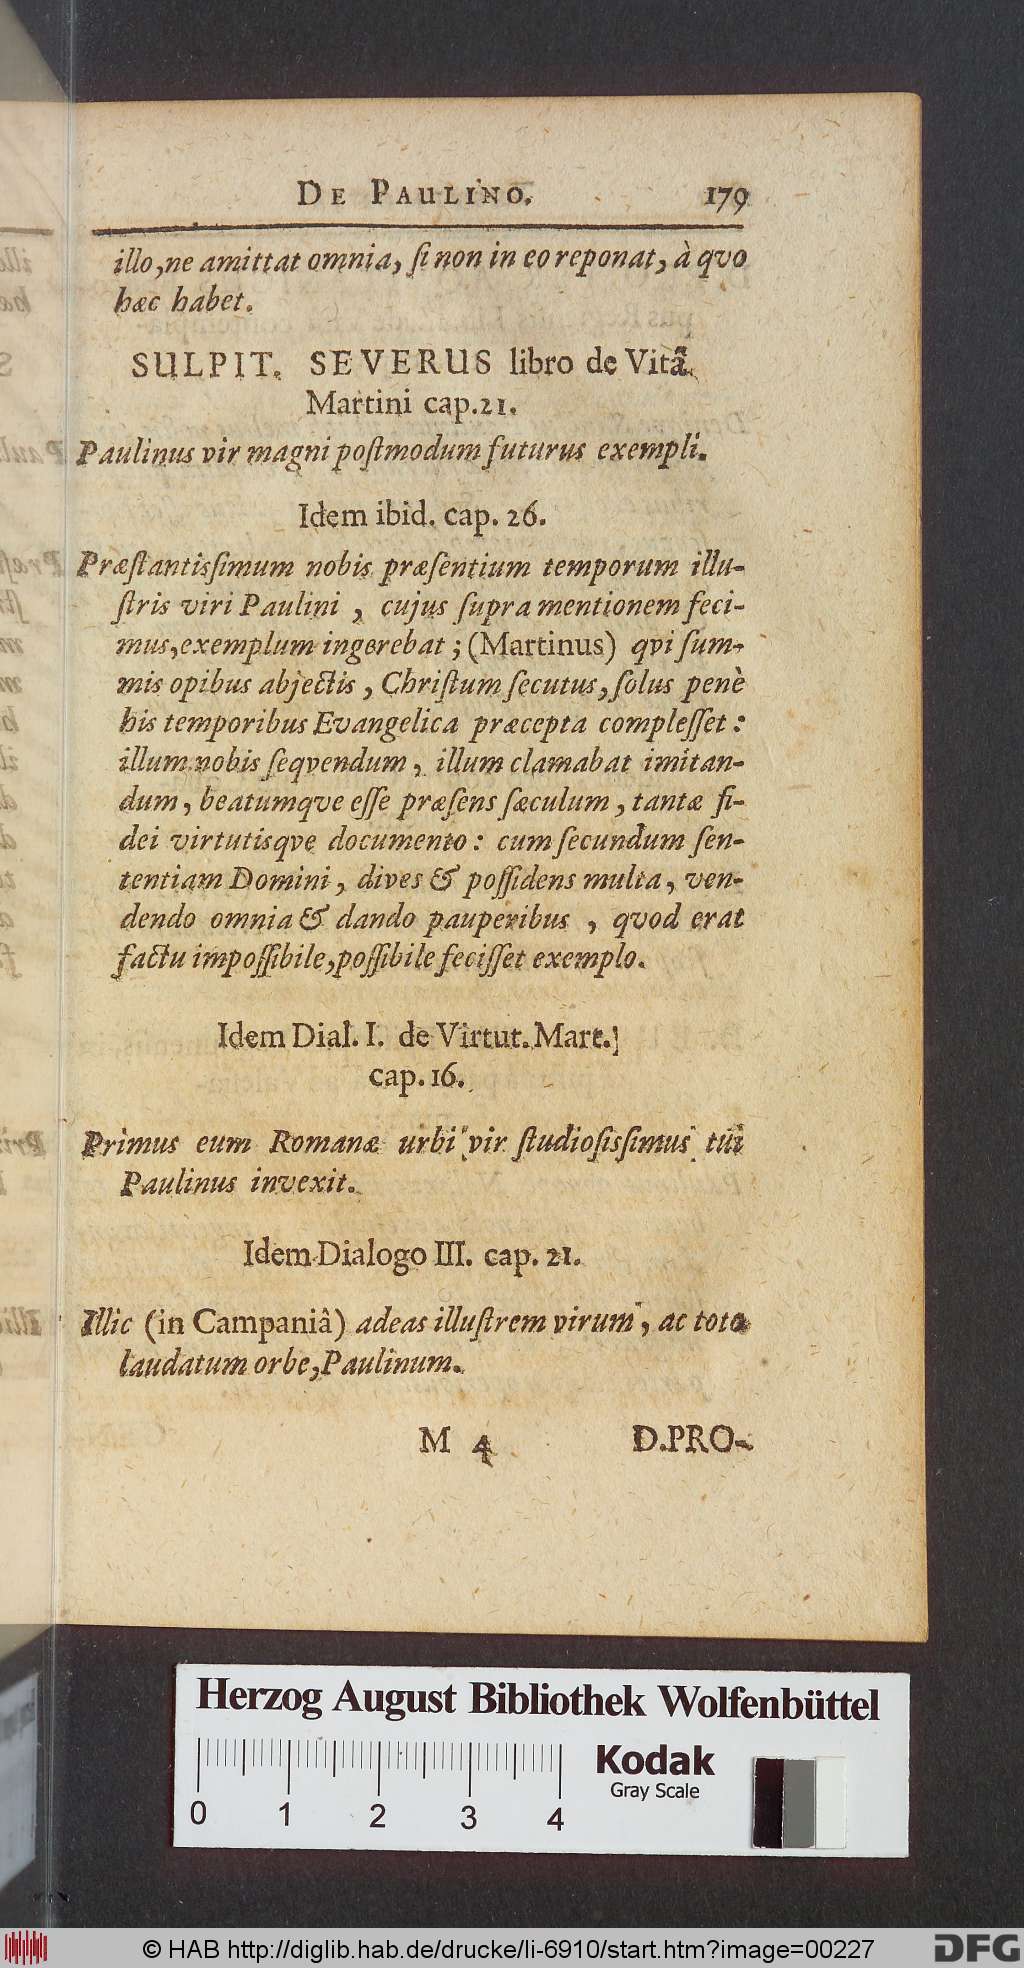 DE PAULINO. 179
illo, ne amittat omnia, ſi non in eo reponat, à qvo
hæc habet.
SULPIT. SEVERUS libro de Vitâ
Martini cap. 21.
Paulinus vir magni poſtmodum futurus exempli.
Idem ibid. cap. 26.
Præſtantiſsimum nobis præſentium temporum illu-
ſtris viri Paulini, cujus ſupra mentionem feci-
mus, exemplum ingerebat; (Martinus) qvi ſum-
mis opibus abjectis, Chriſtum ſecutus, ſolus penè
his temporibus Evangelica præcepta compleſſet:
illum nobis ſeqvendum, illum clamabat imitan-
dum, beatumqve eſſe præſens ſæculum, tantæ fi-
dei virtutisqve documento: cum ſecundum ſen-
tentiam Domini, dives & poſſidens multa, ven-
dendo omnia & dando pauperibus, qvod erat
factu impoſſibile, poſſibile feciſſet exemplo.
Idem Dial. I. de Virtut. Mart.
cap. 16.
Primus eum Romanæ urbi vir ſtudioſiſsimus tui
Paulinus invexit.
Idem Dialogo III. cap. 21.
Illic (in Campaniâ) adeas illuſtrem virum, ac toto
laudatum orbe, Paulinum.
M 4 D. PRO-
Herzog August Bibliothek Wolfenbüttel
Kodak
Gray Scale
0 1 2 3 4
© HAB http://diglib.hab.de/drucke/li-6910/start.htm?image=00227
DFG